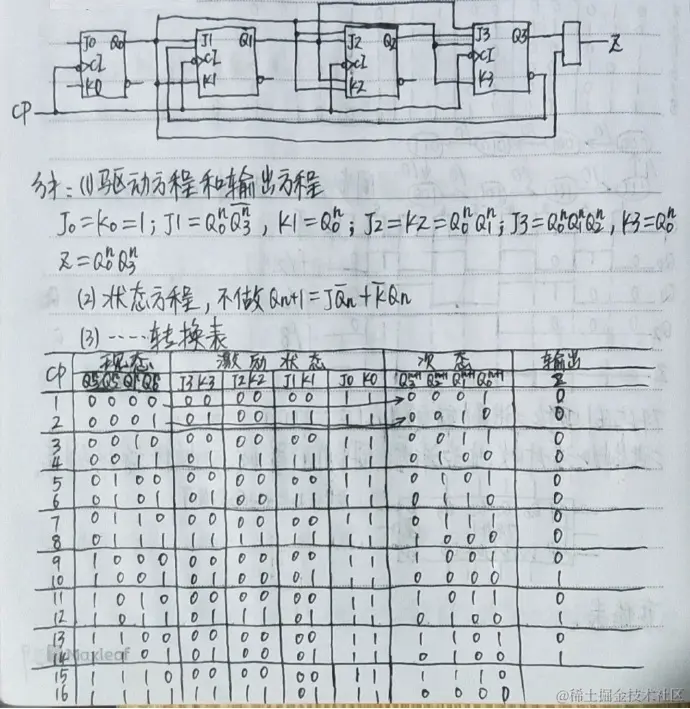 J0 Q0 J1 Q1 J2 Q2 J3 Q3 Z
CI CI CI CI
K0 K1 K2 K3
CP
(1)驱动方程和输出方程
J0=K0=1; J1=Q0ⁿQ̅3ⁿ, K1=Q0ⁿ; J2=K2=Q0ⁿQ1ⁿ; J3=Q0ⁿQ1ⁿQ2ⁿ, K3=Q0ⁿ
Z=Q0ⁿQ3ⁿ
(2)状态方程,不做Qn+1=JQ̅n+K̅Qn
(3)……转换表
CP 现态 激励状态 次态 输出
Q3ⁿ Q2ⁿ Q1ⁿ Q0ⁿ J3 K3 J2 K2 J1 K1 J0 K0 Q3ⁿ⁺¹ Q2ⁿ⁺¹ Q1ⁿ⁺¹ Q0ⁿ⁺¹ Z
1 0 0 0 0 0 0 0 0 0 0 1 1 0 0 0 1 0
2 0 0 0 1 0 1 0 0 1 1 1 1 0 0 1 0 0
3 0 0 1 0 0 0 0 0 0 0 1 1 0 0 1 1 0
4 0 0 1 1 0 1 1 1 1 1 1 1 0 1 0 0 0
5 0 1 0 0 0 0 0 0 0 0 1 1 0 1 0 1 0
6 0 1 0 1 0 1 0 0 1 1 1 1 0 1 1 0 0
7 0 1 1 0 0 0 0 0 0 0 1 1 0 1 1 1 0
8 0 1 1 1 1 1 1 1 1 1 1 1 1 0 0 0 0
9 1 0 0 0 0 0 0 0 0 0 1 1 1 0 0 1 0
10 1 0 0 1 0 1 0 0 0 1 1 1 0 0 0 0 1
11 1 0 1 0 0 0 0 0 0 0 1 1 1 0 1 1 0
12 1 0 1 1 0 1 1 1 0 1 1 1 0 1 0 0 1
13 1 1 0 0 0 0 0 0 0 0 1 1 1 1 0 1 0
14 1 1 0 1 0 1 0 0 0 1 1 1 0 1 0 0 1
15 1 1 1 0 0 0 0 0 0 0 1 1 1 1 1
16 1 1 1 1 1 1 1 1 0 1 1 1 0 0 0 0
Maxleaf
@稀土掘金技术社区